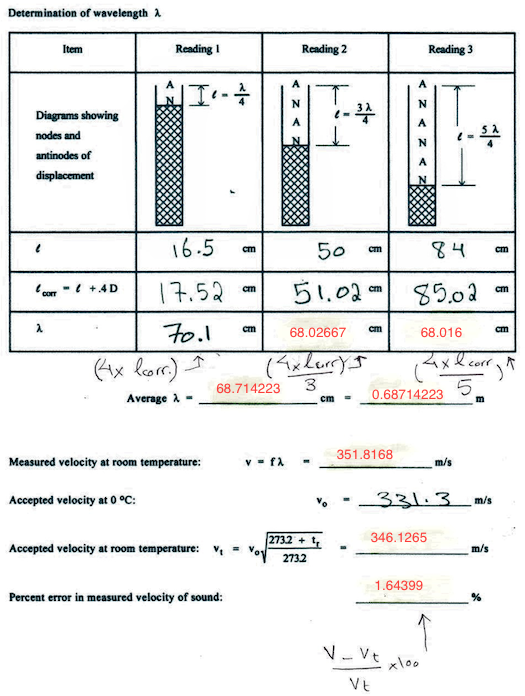 Determination of wavelength λ
Item Reading 1 Reading 2 Reading 3
Diagrams showing
nodes and
antinodes of
displacement
A
N
ℓ = λ/4
A
N
A
N
ℓ = 3 λ/4
A
N
A
N
A
N
ℓ = 5 λ/4
ℓ 16.5 cm 50 cm 84 cm
ℓcorr = ℓ + .4 D 17.52 cm 51.02 cm 85.02 cm
λ 70.1 cm 68.02667 cm 68.016 cm
(4x lcorr.) ↑ (4xlcorr)/3 ↑ (4xlcorr)/5 ↑
Average λ = 68.714223 cm = 0.68714223 m
Measured velocity at room temperature: v = f λ = 351.8168 m/s
Accepted velocity at 0 °C: vo = 331.3 m/s
Accepted velocity at room temperature: vt = vo √((273.2 + tr)/273.2) = 346.1265 m/s
Percent error in measured velocity of sound: 1.64399 %
(V - Vt)/Vt x100